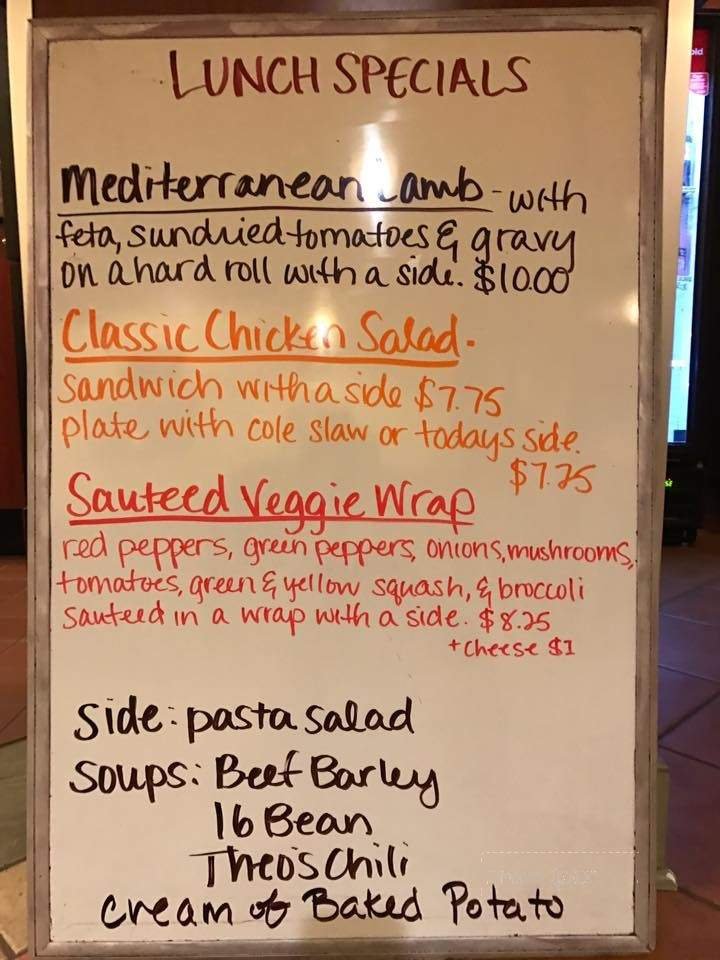 LUNCH SPECIALS
Mediterranean Lamb - with
feta, sundried tomatoes & gravy
on a hard roll with a side. $10.00
Classic Chicken Salad.
Sandwich with a side $7.75
plate with cole slaw or todays side.
$7.25
Sauteed Veggie Wrap
red peppers, green peppers, onions, mushrooms,
tomatoes, green & yellow squash, & broccoli
sauteed in a wrap with a side. $8.25
+ cheese $1
Side: pasta salad
Soups: Beef Barley
16 Bean
Theo's Chili
Cream of Baked Potato